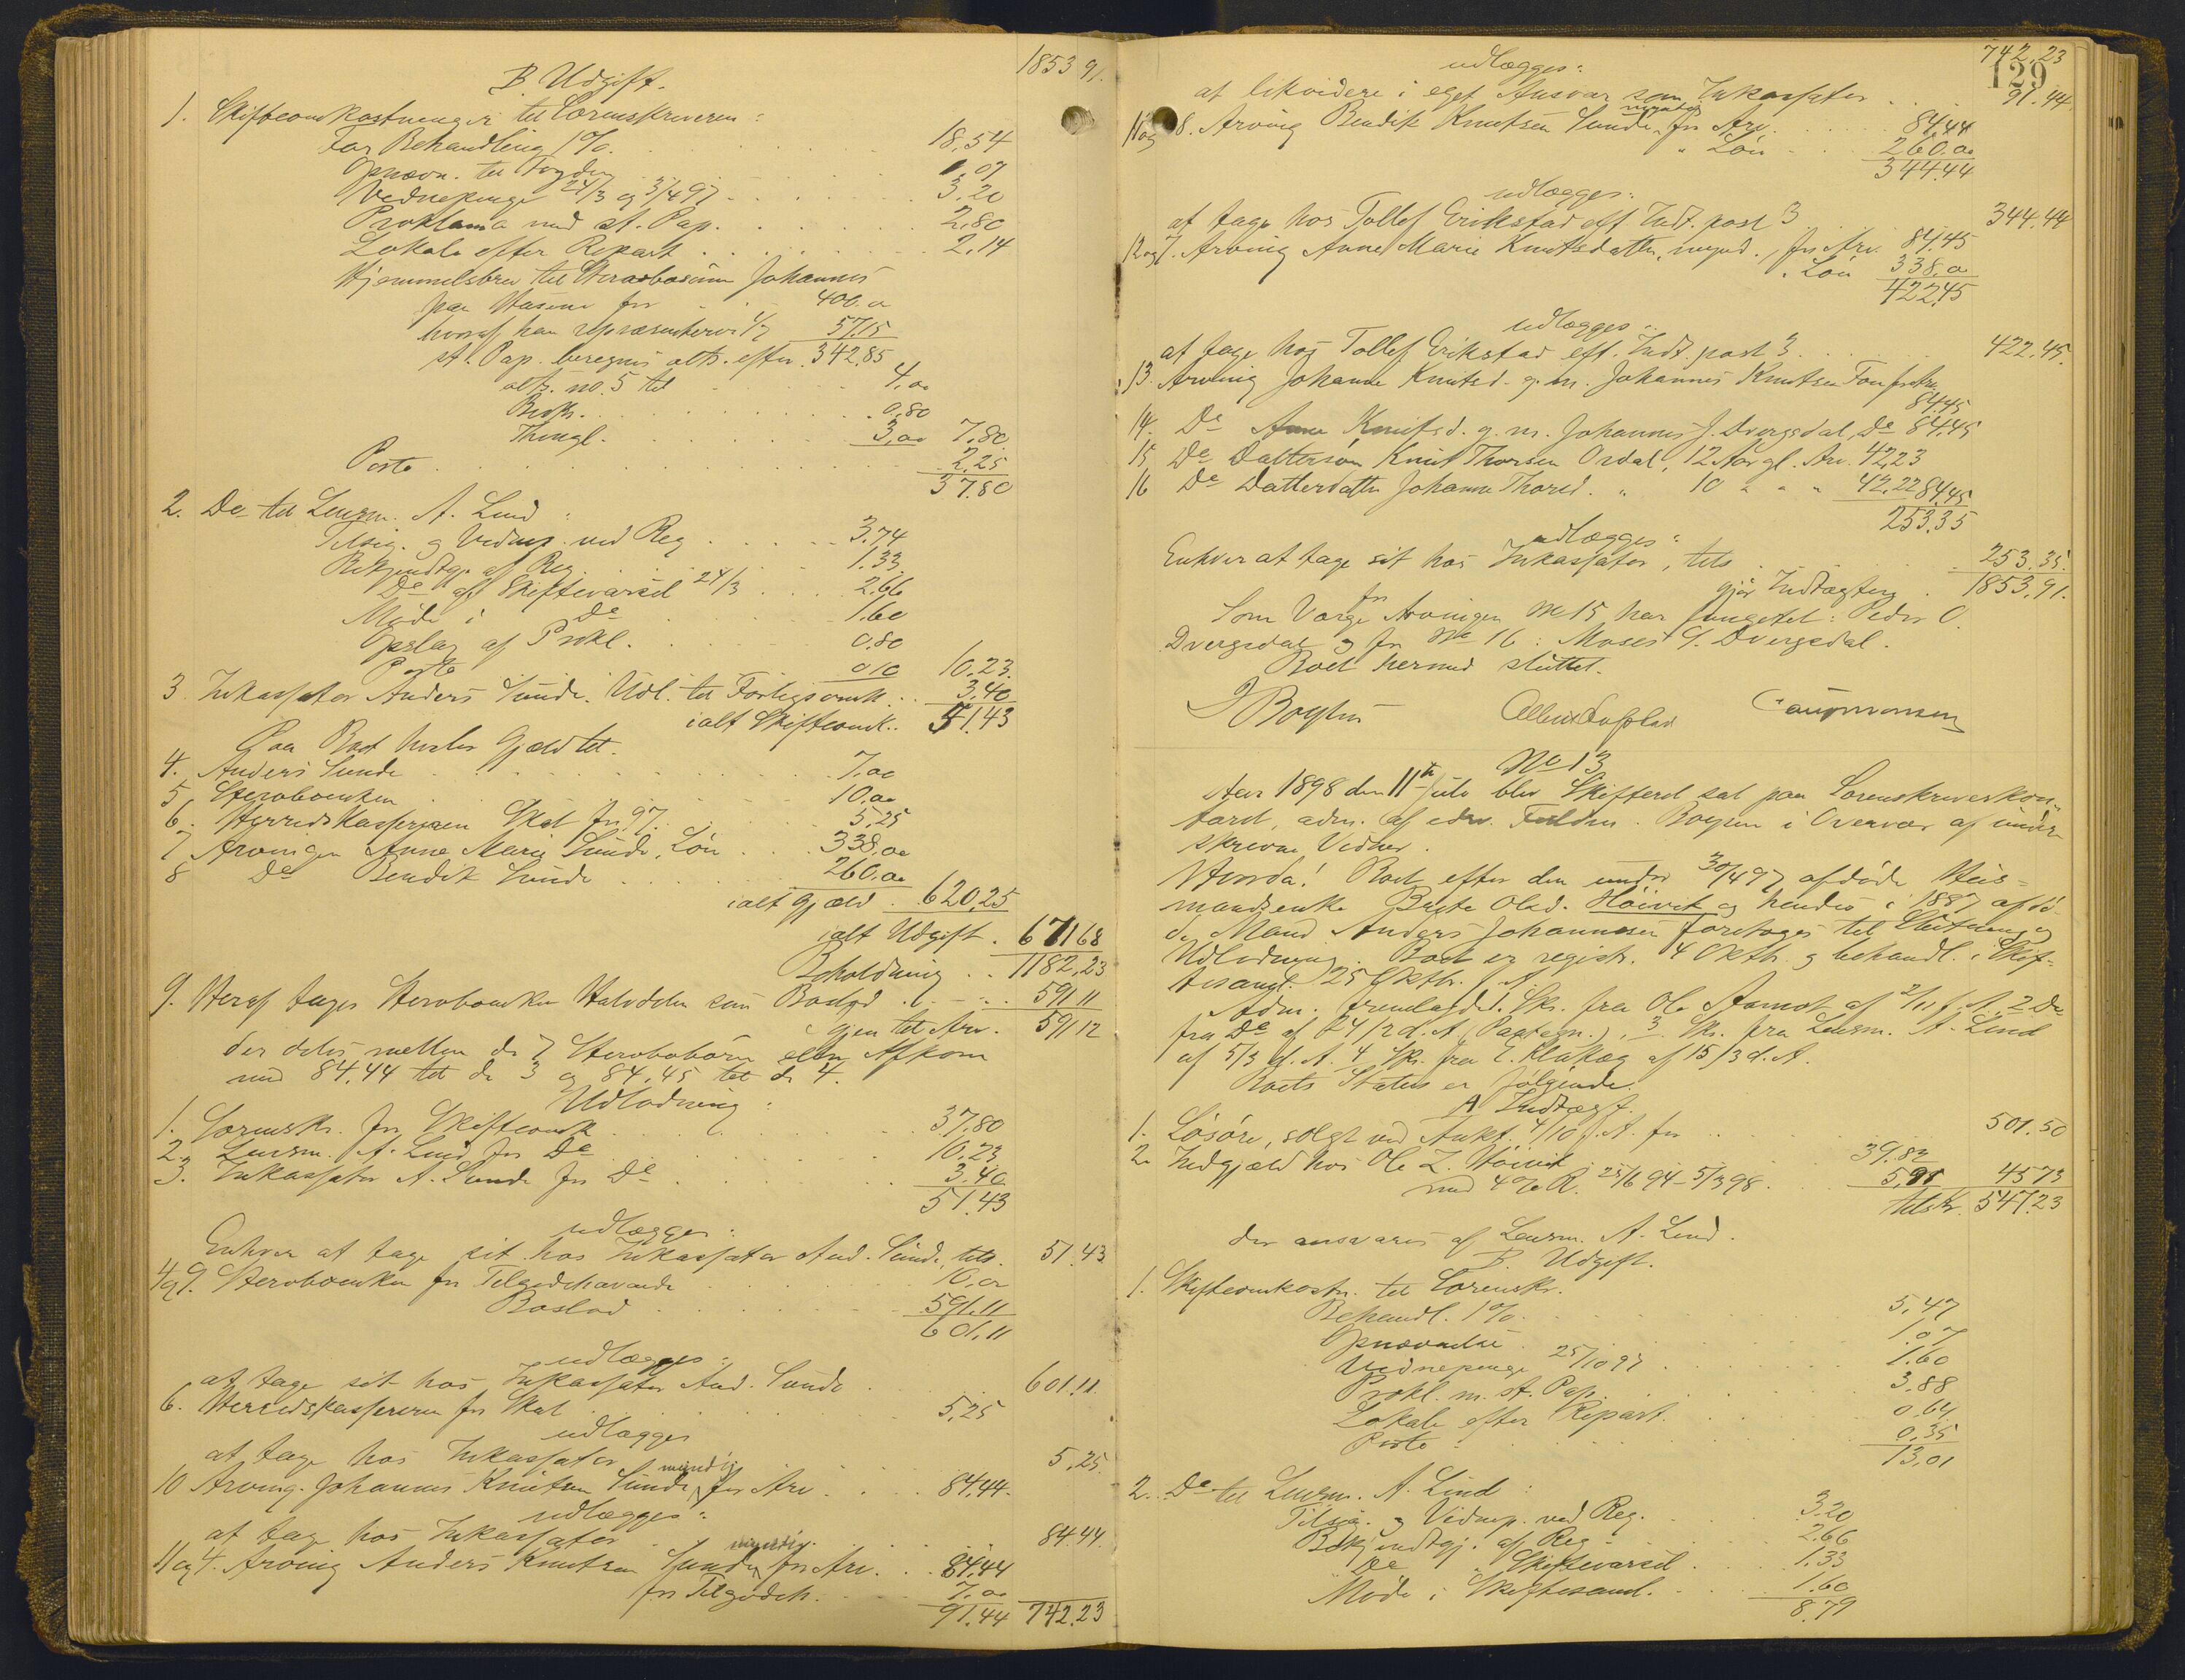 1853 91.
B. Udgift.
1. Skifteomkostninger til Sorenskriveren:
For Behandling 1% . . . 18,54
Opnævn. til Fogden . . . 1,07
Vidnepenge 24/3 og 3/4 97 . . . 3,20
Proklama med st. Pap. . . . 2,80
Lokale efter Repart. . . . 2,14
Hjemmelsbrev til Johannes
paa for . . 400.00
hvoraf han repræsenterer 1/7 57,15
st. Pap. beregnes alts. efter 342,85
alts. no. 5 til . . . 4,00
Besk. . . . 0,80
Thingl. . . . 3,00 7,80
Porto . . . 2,25
37,80
2. Do til Lensm. A. Lind:
Tilsig. og Vidnep. ved Reg. . . . 3.74
Bekjendtgj. af Reg. . . . 1.33
Do af Skiftevarsel 24/3 . . . 2,66
Møde i Do . . . 1,60
Opslag af Prokl. . . . 0,80
Porto 0 10 10,23.
3. Inkassator Anders Sunde. Udl. til Forligsomk. . . 3,40
ialt Skifteomk. . 51,43
Paa Boet hviler Gjæld til.
4. Anders Sunde . . . 7,00
5. Sterboenken . . . 10,00
6. Herredskassereren Skat for 97. . . . 5,25
7 Arvingen Anne Marie Sunde, Løn . . . 338,00
8 Do Bendik Sunde . . . 260,00
ialt Gjæld . 620,25
ialt Udgift . 671 68
Beholdning . . 1182,23
9. Heraf tages Sterboenken Halvdelen som Boslod . . . 591 11
Igjen til Arv. 591 12
der deles mellem de 7 Sterbobørn eller Afkom
med 84,44 til de 3 og 84,45 til de 4.
Udlodning:
1. Sorenskr. for Skifteomk . . . 37,80
2. Lensm. A. Lind for Do . . . 10,23
3. Inkassator A. Sunde for Do . . . 3.40
51.43
udlægges:
Enhver at tage sit hos Inkassator And. Sunde, tils. 51.43
4 og 9. Sterboenken for Tilgodehavende 10,00
Boslod . . . 591.11
601.11
udlægges:
at tage sit hos Inkassator And. Sunde . . . 601.11.
6. Herredskassereren for Skat . . . 5,25
udlægges
at tage hos Inkassator . . . 5,25.
10 Arving. Johannes Knutsen Sunde, myndig for Arv . . . 84,44.
udlægges:
at tage hos Inkassator . . . 84.44.
11 og 4. Arving Anders Knutsen Sunde, myndig for Arv. . . 84,44
for Tilgodeh. . . . 7,00
91.44 742.23
742.23
129
udlægges:
at likvidere i eget Ansvar som Inkassator . . . 91.44
11 og 8. Arving Bendik Knutsen Sunde, myndig for Arv. . . . 84,44
" Løn . . . 260,00
344.44
udlægges:
at tage hos Tollef Erikstad eft. Indt. post 3 . . . 344.44
12 og 7. Arving Anne Marie Knutsdatter, mynd., for Arv. 84,45
" Løn 338,00
422,45
udlægges:
at tage hos Tollef Erikstad eft. Indt. post 3. . . . 422.45.
13. Arving Johanne Knutsd. g. m. Johannes Knutsen for Arv.
84,45
14. Do Anne Knutsd. g. m. Johannes J. Dvergsdal, Do 84,45
15 Do Dattersøn Knut Thorsen Ordal, 12 Aar gl. Arv. 42,23
16 Do Datterdatter Johanne Thorsd. " 10 " " " 42,22 84,45
253.35
udlægges:
Enhver at tage sit hos Inkassator, tils . . . 253.35.
gjør Indtægten . 1853.91.
Som Værge for Arvingen No 15 har fungeret: Peder O.
Dvergsdal og for No 16: Moses G. Dvergsdal.
Boet hermed sluttet.
J Boysen
No 13
Aar 1898 den 11te Juli blev Skifteret sat paa Sorenskriverkon-
toret, adm. af edsv. Fuldm. Boysen i Overvær af under-
skrevne Vidner.
Boet efter den under 30/4 97 afdøde Hus-
mandsenke Brite Olsd. Høivik og hendes i 1887 afdø-
de Mand Anders Johannesen foretages til Slutning og
Udlodning. Boet er registr. 4 Oktb. og behandl. i Skif-
tesaml. 25 Oktbr. f. A.
Adm. fremlagde 1. Skr. fra Ole Aamot af 2/11 f. A. 2 Do
fra Do af 24/2 d. A. (Paategn.), 3. Skr. fra Lensm. A. Lind
af 5/3 d. A. 4 Skr. fra E. Klakæg af 15/3 d. A.
Boets Status er følgende.
A Indtægt.
1. Løsøre, solgt ved Aukt. 4/10 f. A. for . . . 501.50
2. Indgjæld hos Ole L. Høivik . . . 39.82
med 4% R. 25/6 94 - 5/3 98. . . . 5,91 45 73
tilsk. 547.23
der ansvares af Lensm. A. Lind.
B. Udgift.
1. Skifteomkostn. til Sorenskr.
Behandl. 1% . . . 5,47
Opnævnelse . . . 1.07
Vidnepenge 25/10 97 . . . 1.60
Prokl. m. st. Pap. . . . 3,88
Lokale efter Repart. . . . 0,64
Porto . . . 0,35
13,01
2. Do til Lensm. A. Lind:
Tilsig. og Vidnep. ved Reg. . . . 3,20
Bekjendtgj. af Reg. . . . 2.66
Do " Skiftevarsel . . . 1.33
Møde i Skiftesaml. . . . 1.60
8.79